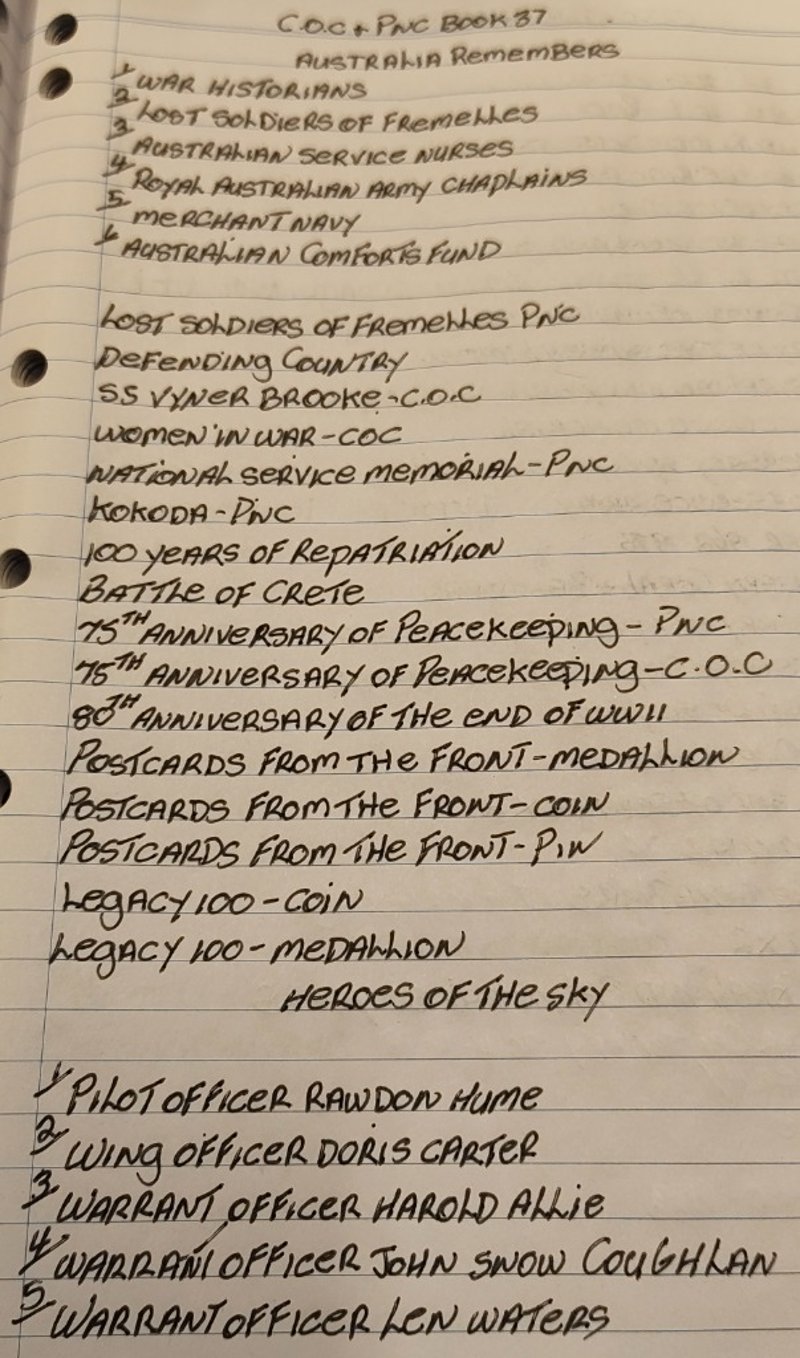 C.O.C + PNC BOOK 37
AUSTRALIA REMEMBERS
1/ WAR HISTORIANS
2/ LOST SOLDIERS OF FREMELLES
3/ AUSTRALIAN SERVICE NURSES
4/ ROYAL AUSTRALIAN ARMY CHAPLAINS
5/ MERCHANT NAVY
6/ AUSTRALIAN COMFORTS FUND
LOST SOLDIERS OF FREMELLES PNC
DEFENDING COUNTRY
SS VYNER BROOKE-C.O.C
WOMEN IN WAR-COC
NATIONAL SERVICE MEMORIAL-PNC
KOKODA-PNC
100 YEARS OF REPATRIATION
BATTLE OF CRETE
75TH ANNIVERSARY OF PEACEKEEPING-PNC
75TH ANNIVERSARY OF PEACEKEEPING-C.O.C
80TH ANNIVERSARY OF THE END OF WWII
POSTCARDS FROM THE FRONT-MEDALLION
POSTCARDS FROM THE FRONT-COIN
POSTCARDS FROM THE FRONT-PIN
LEGACY 100-COIN
LEGACY 100-MEDALLION
HEROES OF THE SKY
1/ PILOT OFFICER RAWDON HUME
2/ WING OFFICER DORIS CARTER
3/ WARRANT OFFICER HAROLD ALLIE
4/ WARRANT OFFICER JOHN SNOW COUGHLAN
5/ WARRANT OFFICER LEN WATERS